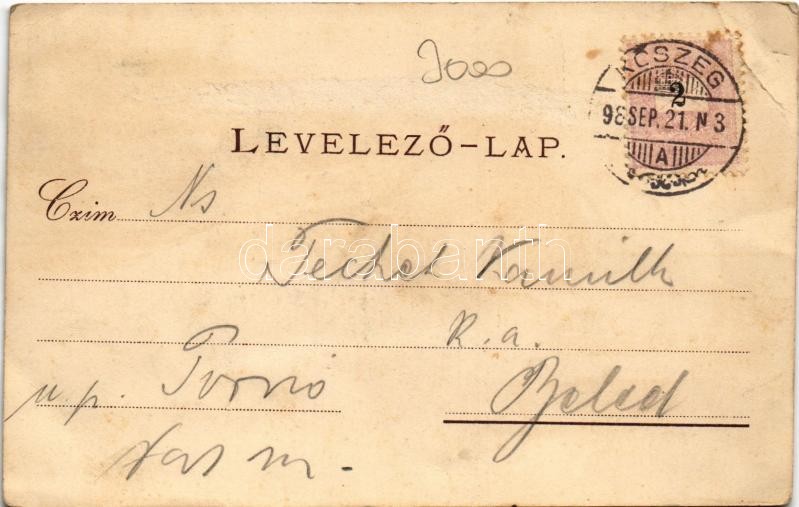 3000
KŐSZEG
2
98 SEP. 21. N 3
A
LEVELEZŐ-LAP.
Czim Ns
darabanth
Techet Kamill
k. a.
u. p. Pornó Beled
Vas m.